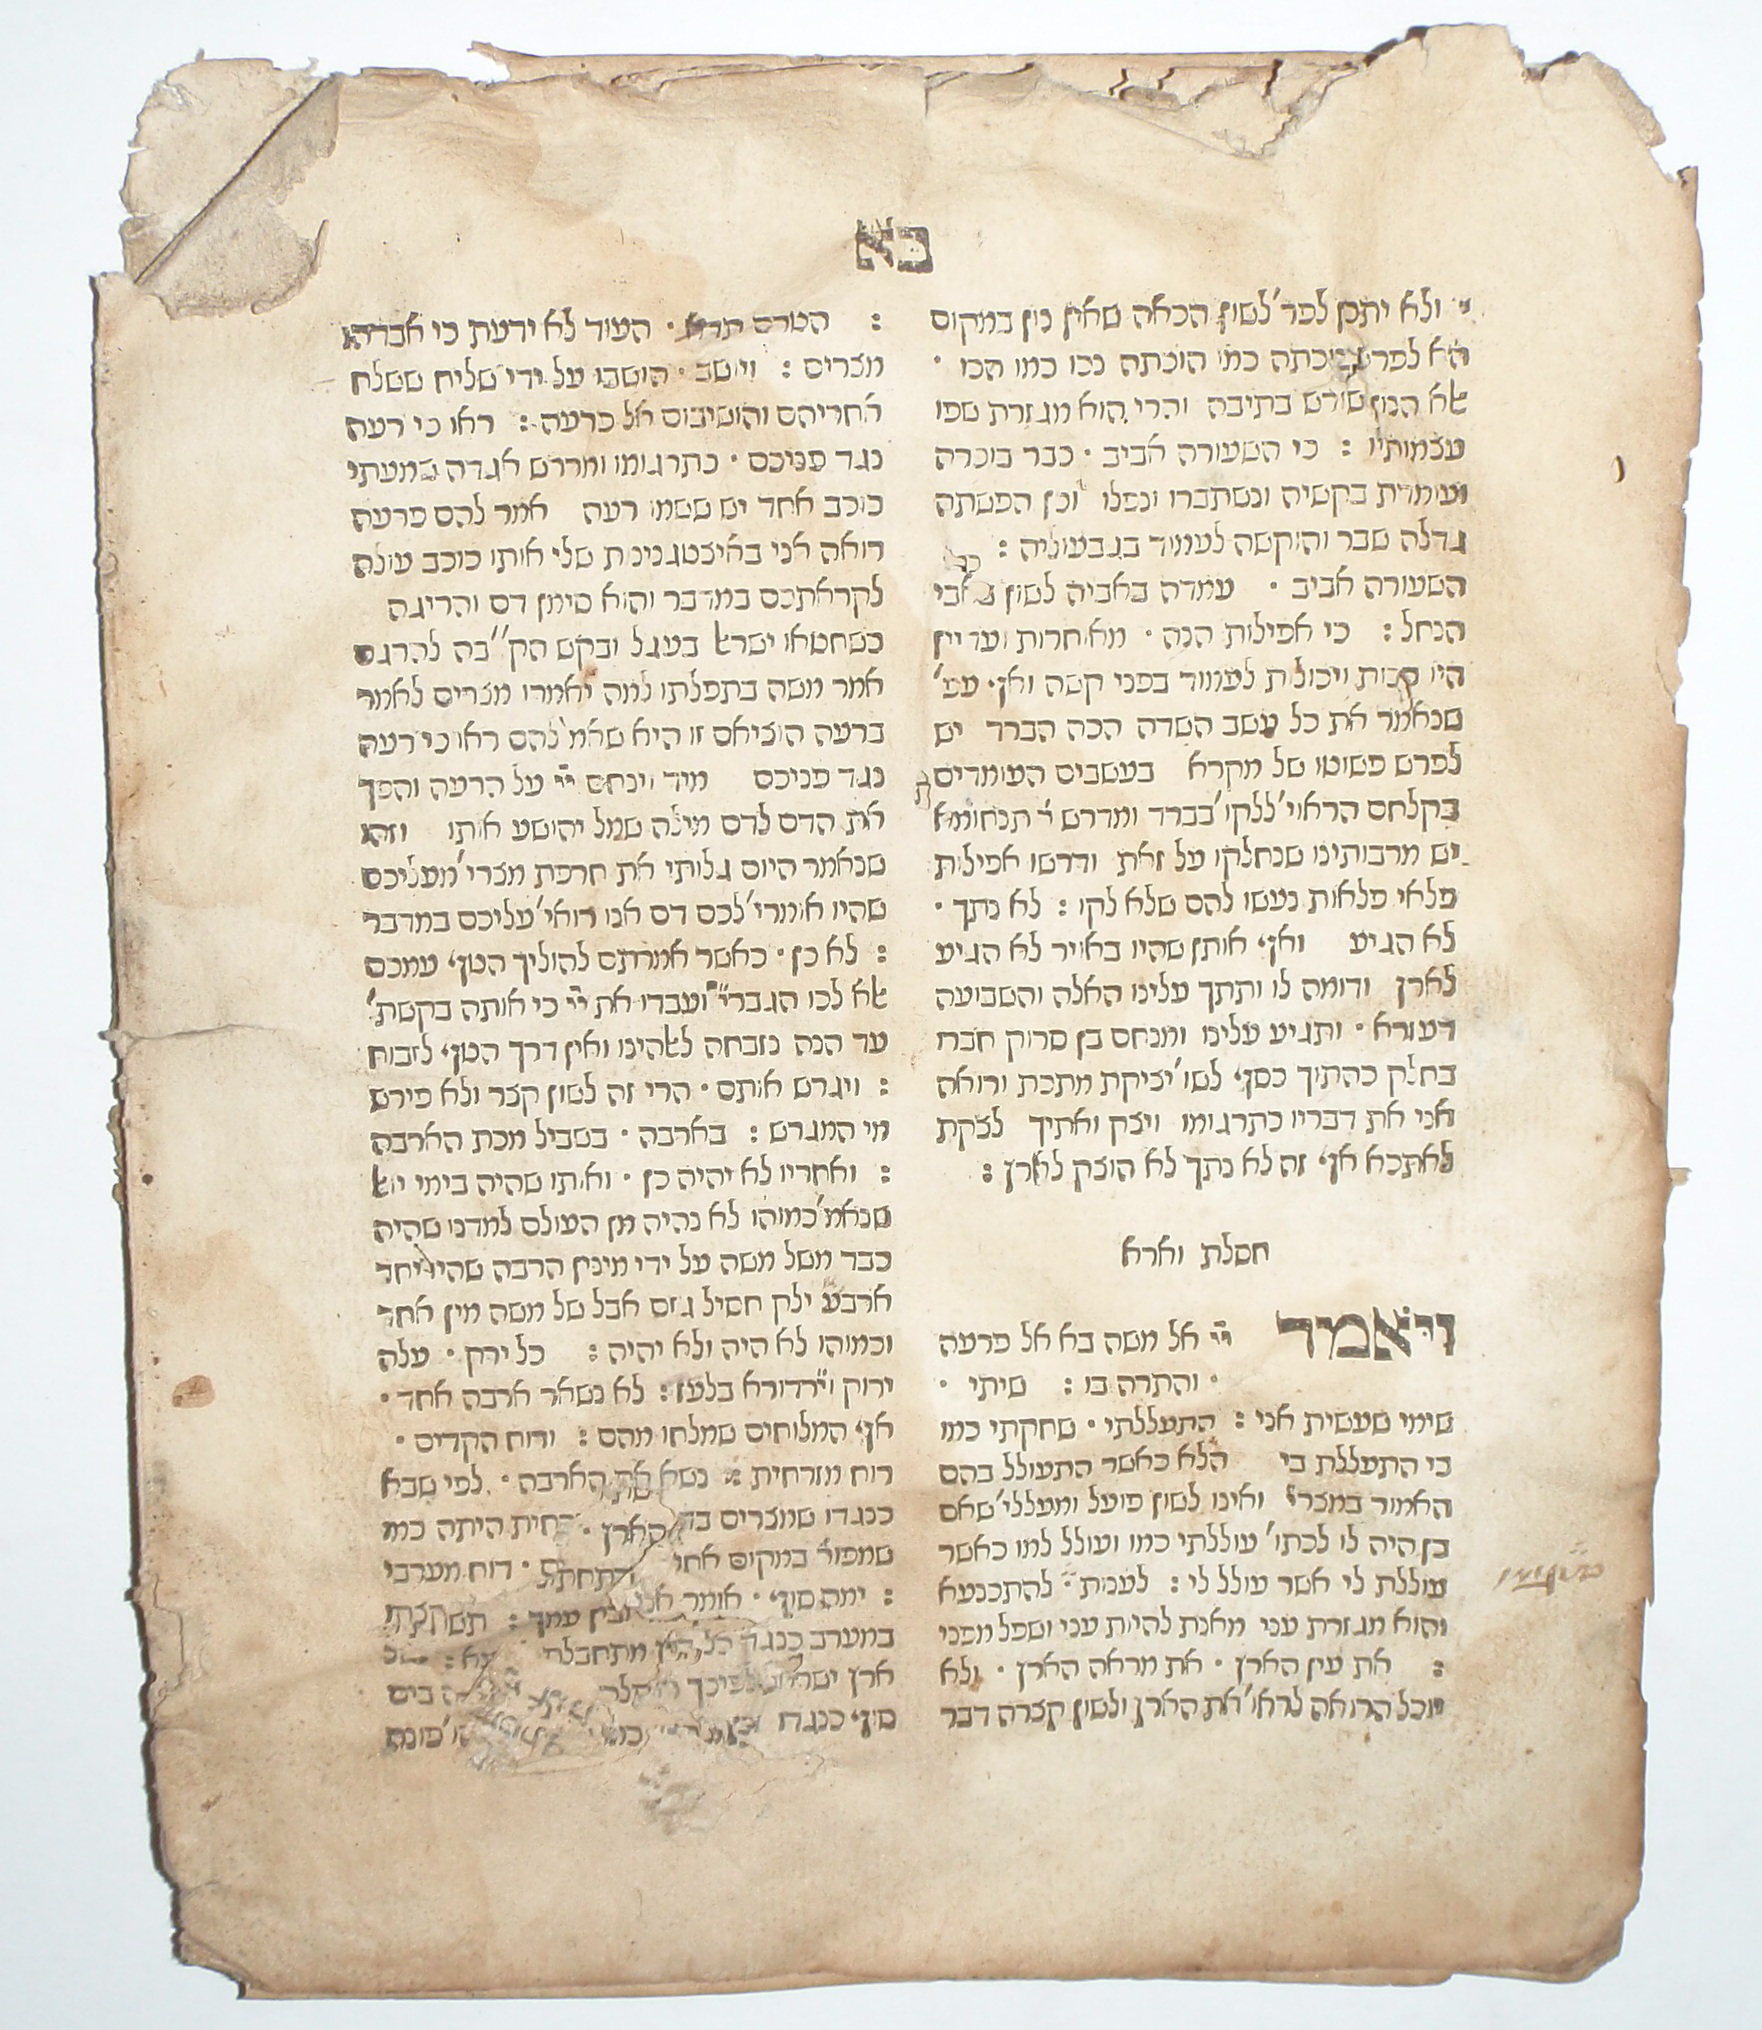 בא
ולא יתכן לפר' לשון הכאה שאין נון במקום
ה"א לפרש נוכתה כמו הוכתה נכו כמו הכו ·
אלא הנון שורש בתיבה והרי הוא מגזרת שפו
עצמותיו : כי השעורה אביב · כבר בוכרה
ועומדת בקשיה ונשתברו ונפלו וכן הפשתה
גדלה כבר והוקשה לעמוד בגבעוליה :
השעורה אביב · עמדה באביה לשון באבי
הנחל : כי אפילות הנה · מאוחרות ועדיין
היו רכות ויכולות לעמוד בפני קשה ואף עפ'
שנאמר את כל עשב השדה הכה הברד יש
לפרש פשוטו של מקרא בעשבים העומדים
בקלחם הראוי' ללקו' בברד ומדרש ר' תנחומא
יש מרבותינו שנחלקו על זאת ודרשו אפילות
פלאי פלאות נעשו להם שלא לקו : לא נתך ·
לא הגיע ואף אותן שהיו באויר לא הגיע
לארץ ודומה לו ותתך עלינו האלה והשבועה
דעזרא · ותגיע עלינו ומנחם בן סרוק חברו
בחלק כהתוך כסף לשו' יציקת מתכת ורואה
אני את דבריו כתרגומו ויצק ואתיך לצקת
לאתכא אף זה לא נתך לא הוצק לארץ :
חסלת וארא
ויאמר יי אל משה בא אל פרעה
· והתרה בו : שיתי ·
שימי שעשית אני : התעללתי · שחקתי כמו
כי התעללת בי הלא כאשר התעולל בהם
האמור במצרי' ואינו לשון פועל ומעללי' שאם
כן היה לו לכתו' עוללתי כמו ועולל למו כאשר
עוללת לי אשר עולל לי : לענות · להתכנעא
והוא מגזרת עני מאנת להיות עני ושפל מפני
: את עין הארץ · את מראה הארץ · ולא
יוכל הרואה לראו' את הארץ ולשון קצרה דבר
: הטרם תדע · העוד לא ידעת כי אבדה
מצרים : ויושב · הושבו על ידי שליח ששלח
אחריהם והושיבום אל פרעה : ראו כי רעה
נגד פניכם · כתרגומו ומדרש אגדה שמעתי
כוכב אחד יש ששמו רעה אמר להם פרעה
רואה אני באיצטגנינות שלי אותו כוכב עולה
לקראתכם במדבר והוא סימן דם והריגה
כשחטאו ישראל בעגל ובקש הק"בה להרגם
אמר משה בתפלתו למה יאמרו מצרים לאמר
ברעה הוציאם זו היא שאמ' להם ראו כי רעה
נגד פניכם מיד וינחם יי על הרעה והפך
את הדם לדם מילה שמל יהושע אותו וזהו
שנאמר היום גלותי את חרפת מצרי' מעליכם
שהיו אומרי' לכם דם אנו רואי' עליכם במדבר
: לא כן · כאשר אמרתם להוליך הטף עמכם
אלא לכו הגברי' ועבדו את יי כי אותה בקשת'
עד הנה נזבחה לאלהינו ואין דרך הטף לזבוח
: ויגרש אותם · הרי זה לשון קצר ולא פירש
מי המגרש : בארבה · בשביל מכת הארבה
: ואחריו לא יהיה כן · ואותו שהיה בימי יואל
שנאמ' כמוהו לא נהיה מן העולם למדנו שהיה
כבד משל משה על ידי מינין הרבה שהיו יחד
ארבע ילק חסיל גזם אבל של משה מין אחד
וכמוהו לא היה ולא יהיה : כל ירק · עלה
ירוק ו"ירדורא בלעז : לא נשאר ארבה אחד ·
אף המלוחים שמלחו מהם : ורוח הקדים ·
רוח מזרחית : נשא את הארבה · לפי שבא
כנגדו שמצרים הארץ · היתה כמו
שמפור' במקום אחר · רוח מערבי
: ימה סוף · אומר אני תשתצתי
במערב כנגד
ארץ ישראל לפיכך בים
סוף כנגדו